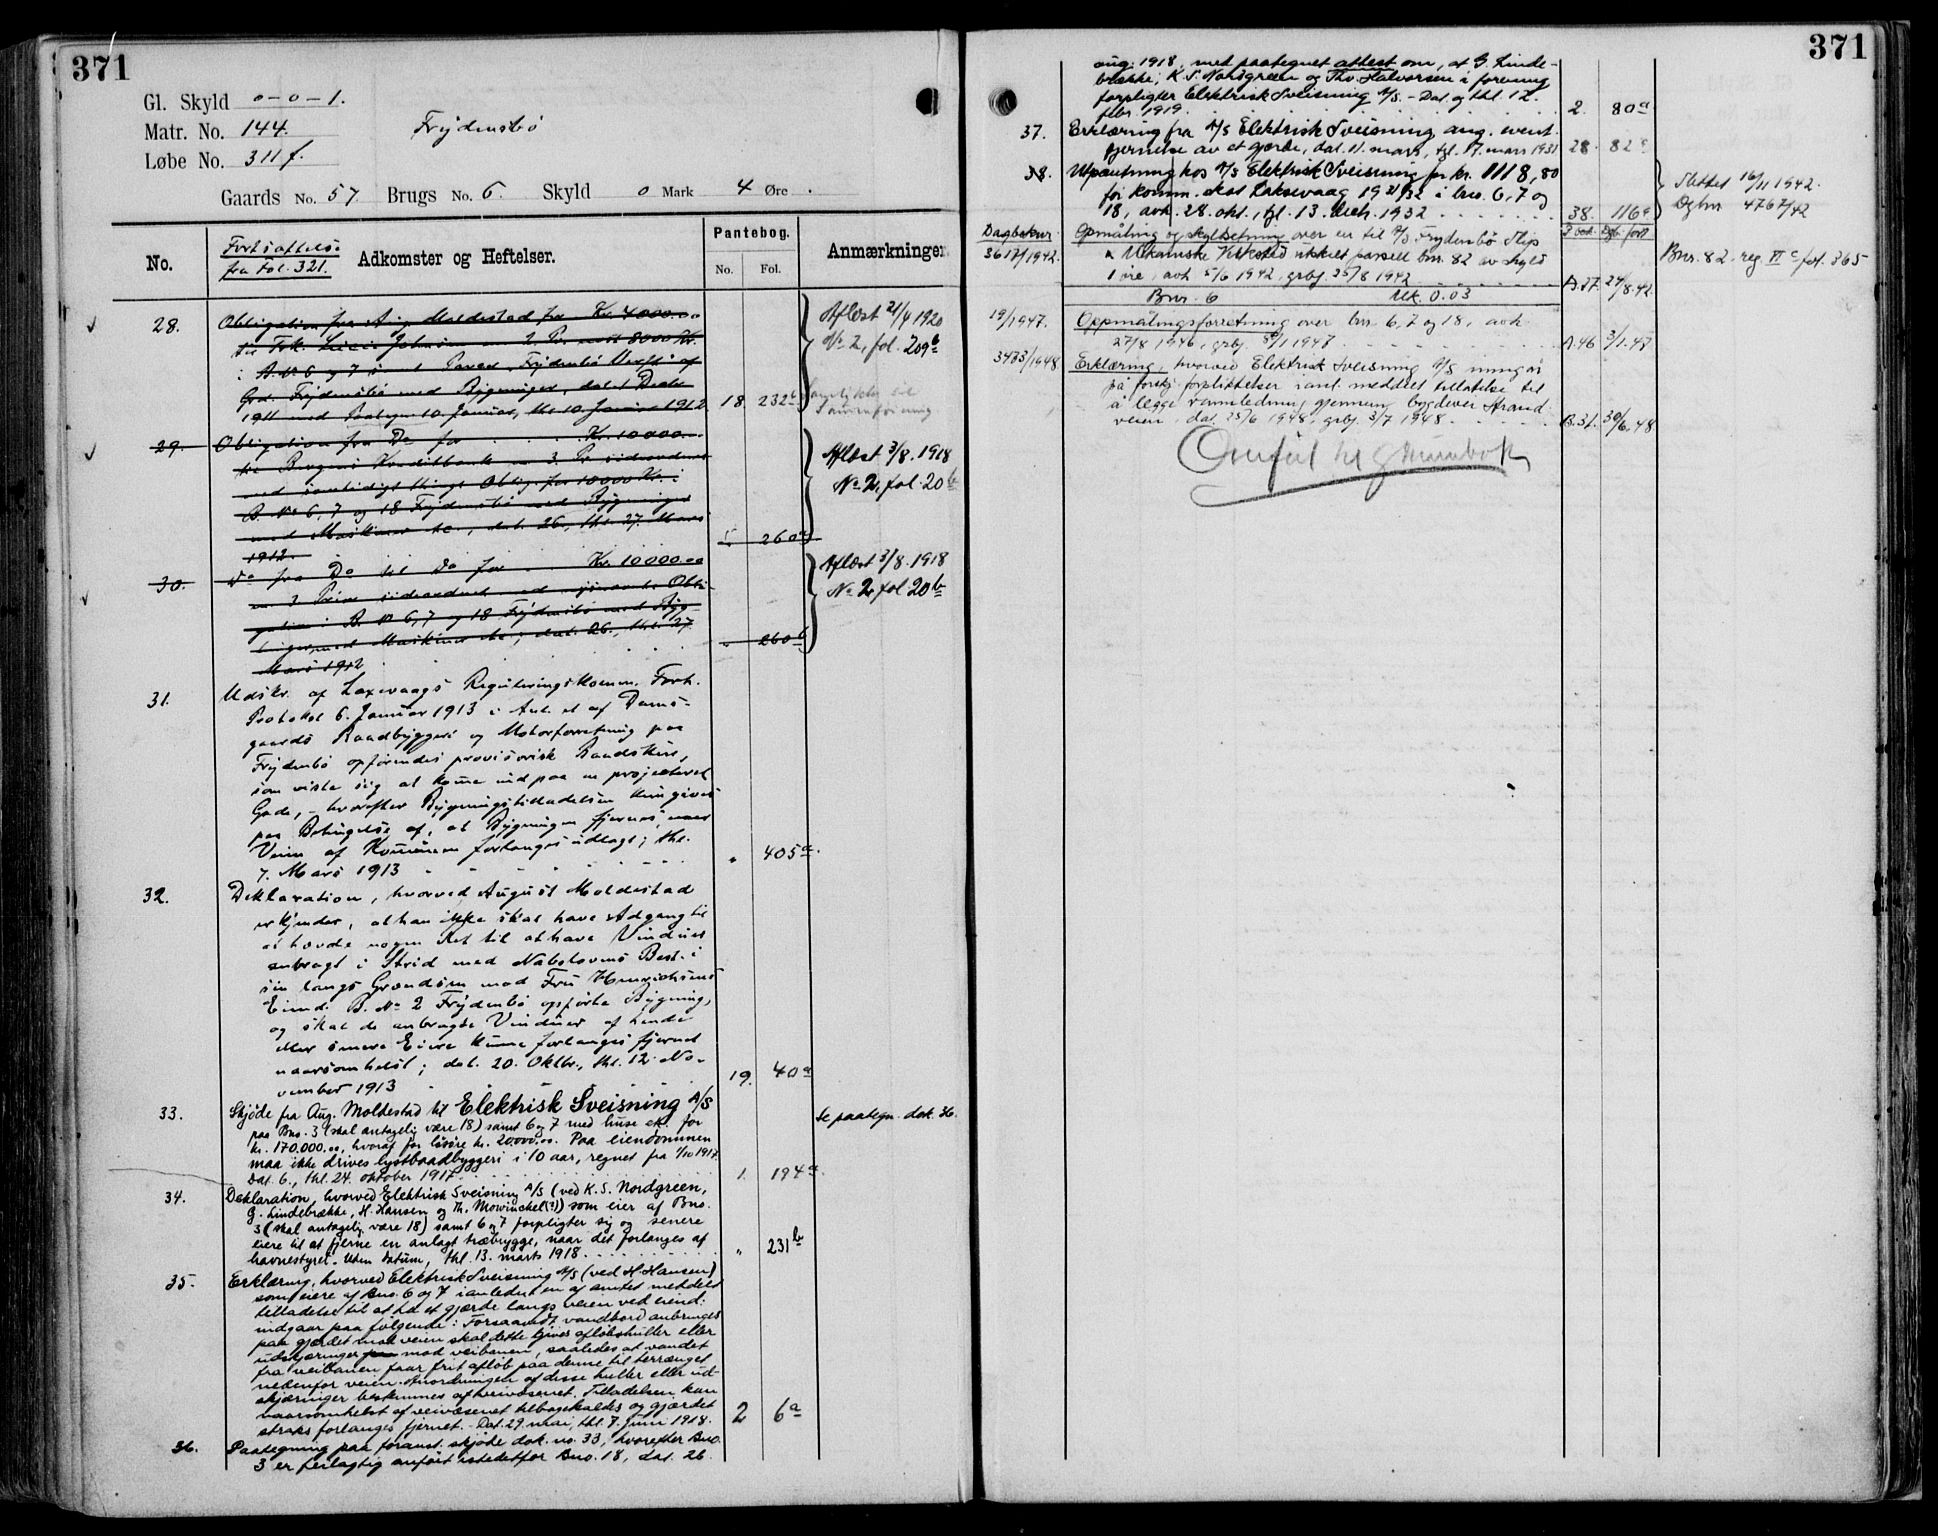 371
Gl. Skyld 0-0-1.
Matr. No. 144.
Løbe No. 311 f.
Frydensbø
Gaards No. 57. Brugs No. 6. Skyld 0 Mark 4 Øre.
No.
Fortsættelse
fra Fol. 321.
Adkomster og Heftelser.
Pantebog.
No. Fol.
Anmærkninger
28. Obligation fra Aug. Moldestad for Kr. 4000.00
til Frk. Johnsen 2. Pr. 8000 Kr.
i B. No 6 og 7
Grd. Frydensbø med Bygninger, datert Decbr
1911 med Paategn. 10. Januar, thl. 10. Januar 1912 18 232b
Aflæst 21/4 1920
No 2, fol. 209b
29. Obligation fra Do for Kr. 10000.
til Bergens Kreditbank m 3. Pr. sideordnet
med samtidigt thingl. Oblig. for 10000 Kr. i
B. No 6, 7 og 18 Frydensbø med Bygninger
med Maskiner &c., dat. 26., thl. 27. Mars
1912. 260a
Aflæst 3/8. 1918
No 2, fol. 20b
30. Do fra Do til Do for Kr. 10000.00
B. No 6, 7 og 18 Frydensbø med Byg-
ninger, med Maskiner &c; dat. 26., thl. 27.
Mars 1912 " 260b
Aflæst 3/8. 1918
No 2, fol 20b
31. Udskr. af Laxevaags Reguleringskomm. Forh.
Protokol 6. Januar 1913 i Anl. et af Dams-
gaards Baadbyggeri og Motorforretning paa
Frydenbø opførendes provisorisk Baadskur,
som viste sig at komme ind paa en projecteret
Gade, - hvorefter Bygningstilladelsen kun gives
paa Betingelse af, at Bygningen fjernes, naar
Veien af Kommunen forlanges udlagt; thl.
7. Mars 1913 " 405a.
32. Deklaration, hvorved August Moldestad
erkjender, at han ikke skal have Adgang til
at hævde nogen Ret til at have Vinduer
anbragt i Strid med Nabolovens Best. i
sin langs Grændsen mod Fru Henrichsens
Eiend. B. No 2 Frydenbø opførte Bygning,
og skal de anbragte Vinduer af hende
eller senere Eiere kunne forlanges fjernet
naarsomhelst; dat. 20. Oktbr., thl. 12. No-
vember 1913 19. 40a
33. Skjøde fra Aug. Moldestad til Elektrisk Sveisning A/S
paa Bno. 3 (skal antagelig være 18) samt 6 og 7 med huse etc. for
kr. 170.000.00, hvoraf for løsøre kr. 20.000.00. Paa eiendommen
maa ikke drives lystbaadbyggeri i 10 aar, regnet fra 1/10 1917.
Dat. 6., thl. 24. oktober 1917. 1. 194a.
Se paategn. dok. 36.
34. Deklaration, hvorved Elektrisk Sveisning A/S (ved K. S. Nordgreen,
G. Lindebrække, H. Hansen og Th. Mowinckel(?)) som eier af Bno.
3 (skal antagelig være 18) samt 6 og 7 forpligter sig og senere
eiere til at fjerne en anlagt træbrygge, naar det forlanges af
havnestyret. Uden datum, thl. 13. marts 1918. " 231b
35. Erklæring, hvorved Elektrisk Sveisning A/S (ved H. Hansen)
som eiere af Bno. 6 og 7 i anledn. en af amtet meddelt
tilladelse til at ha et gjærde langs veien ved eiend:
indgaar paa følgende: Forsaavidt vandbord anbringes
paa gjærdet mod veien skal dette gives afløbshuller eller
udskjæringer mod veibanen, saaledes at vandet
fra veibanen faar frit afløb paa denne til terrænget
nedenfor veien. Anordningen af disse huller eller ud-
skjæringer bestemmes af veivæsenet. Tilladelsen kan
naarsomhelst af veivæsenet tilbagekaldes og gjærdet
straks forlanges fjernet. - Dat. 29. mai, thl. 7. juni 1918. 2 6a
36. Paategning paa foranst. skjøde dok. no. 33, hvorefter Bno.
3 er feilagtig anført istedetfor Bno. 18, dat. 26.
371
aug. 1918, med paategnet attest om, at G. Linde-
brække, K. S. Nordgreen og Thv. Halvorsen i forening
forpligter Elektrisk Sveisning A/S. - Dat. og thl. 12.
febr. 1919. 2. 80a
37. Erklæring fra A/S Elektrisk Sveisning ang. event.
fjernelse av et gjerde, dat. 11. mars, tgl. 17. mars 1931 28. 82a
38. Utpantning hos A/S Elektrisk Sveisning for kr. 1118,80
for komm. skat Laksevaag 1931/32 i bno. 6, 7 og
18, avh. 28. okt., tgl. 13. decb. 1932 38. 116a
Slettet 16/11 1942.
Dgbnr 4767/42
Dagboknr
3617/1942. Opmåling og skyldsetning over en til A/S Frydenbø Slip
& Mekaniske Verksted utskilt parsell bnr. 82 av skyld
1 øre, avh 5/6 1942, grbg. 25/8 1942 A.37. 24/8.42.
P. bok. Dgb. ført
Bnr. 82. reg. VI c fol. 365
Bnr. 6 Mk. 0.03
19/1947. Oppmålingsforretning over bnr 6, 7 og 18, avh.
27/8 1946, grbg. 8/1 1947 A.46 3/1.47
3473/1948. Erklæring, hvorved Elektrisk Sveisning A/S inngår
på forskj. forpliktelser i anl. meddelt tillatelse til
å legge vannledning gjennem bygdevei Strand-
veien, dat. 25/6 1948, grbg. 3/7 1948. B.31. 30/6.48
Overført til grunnbok